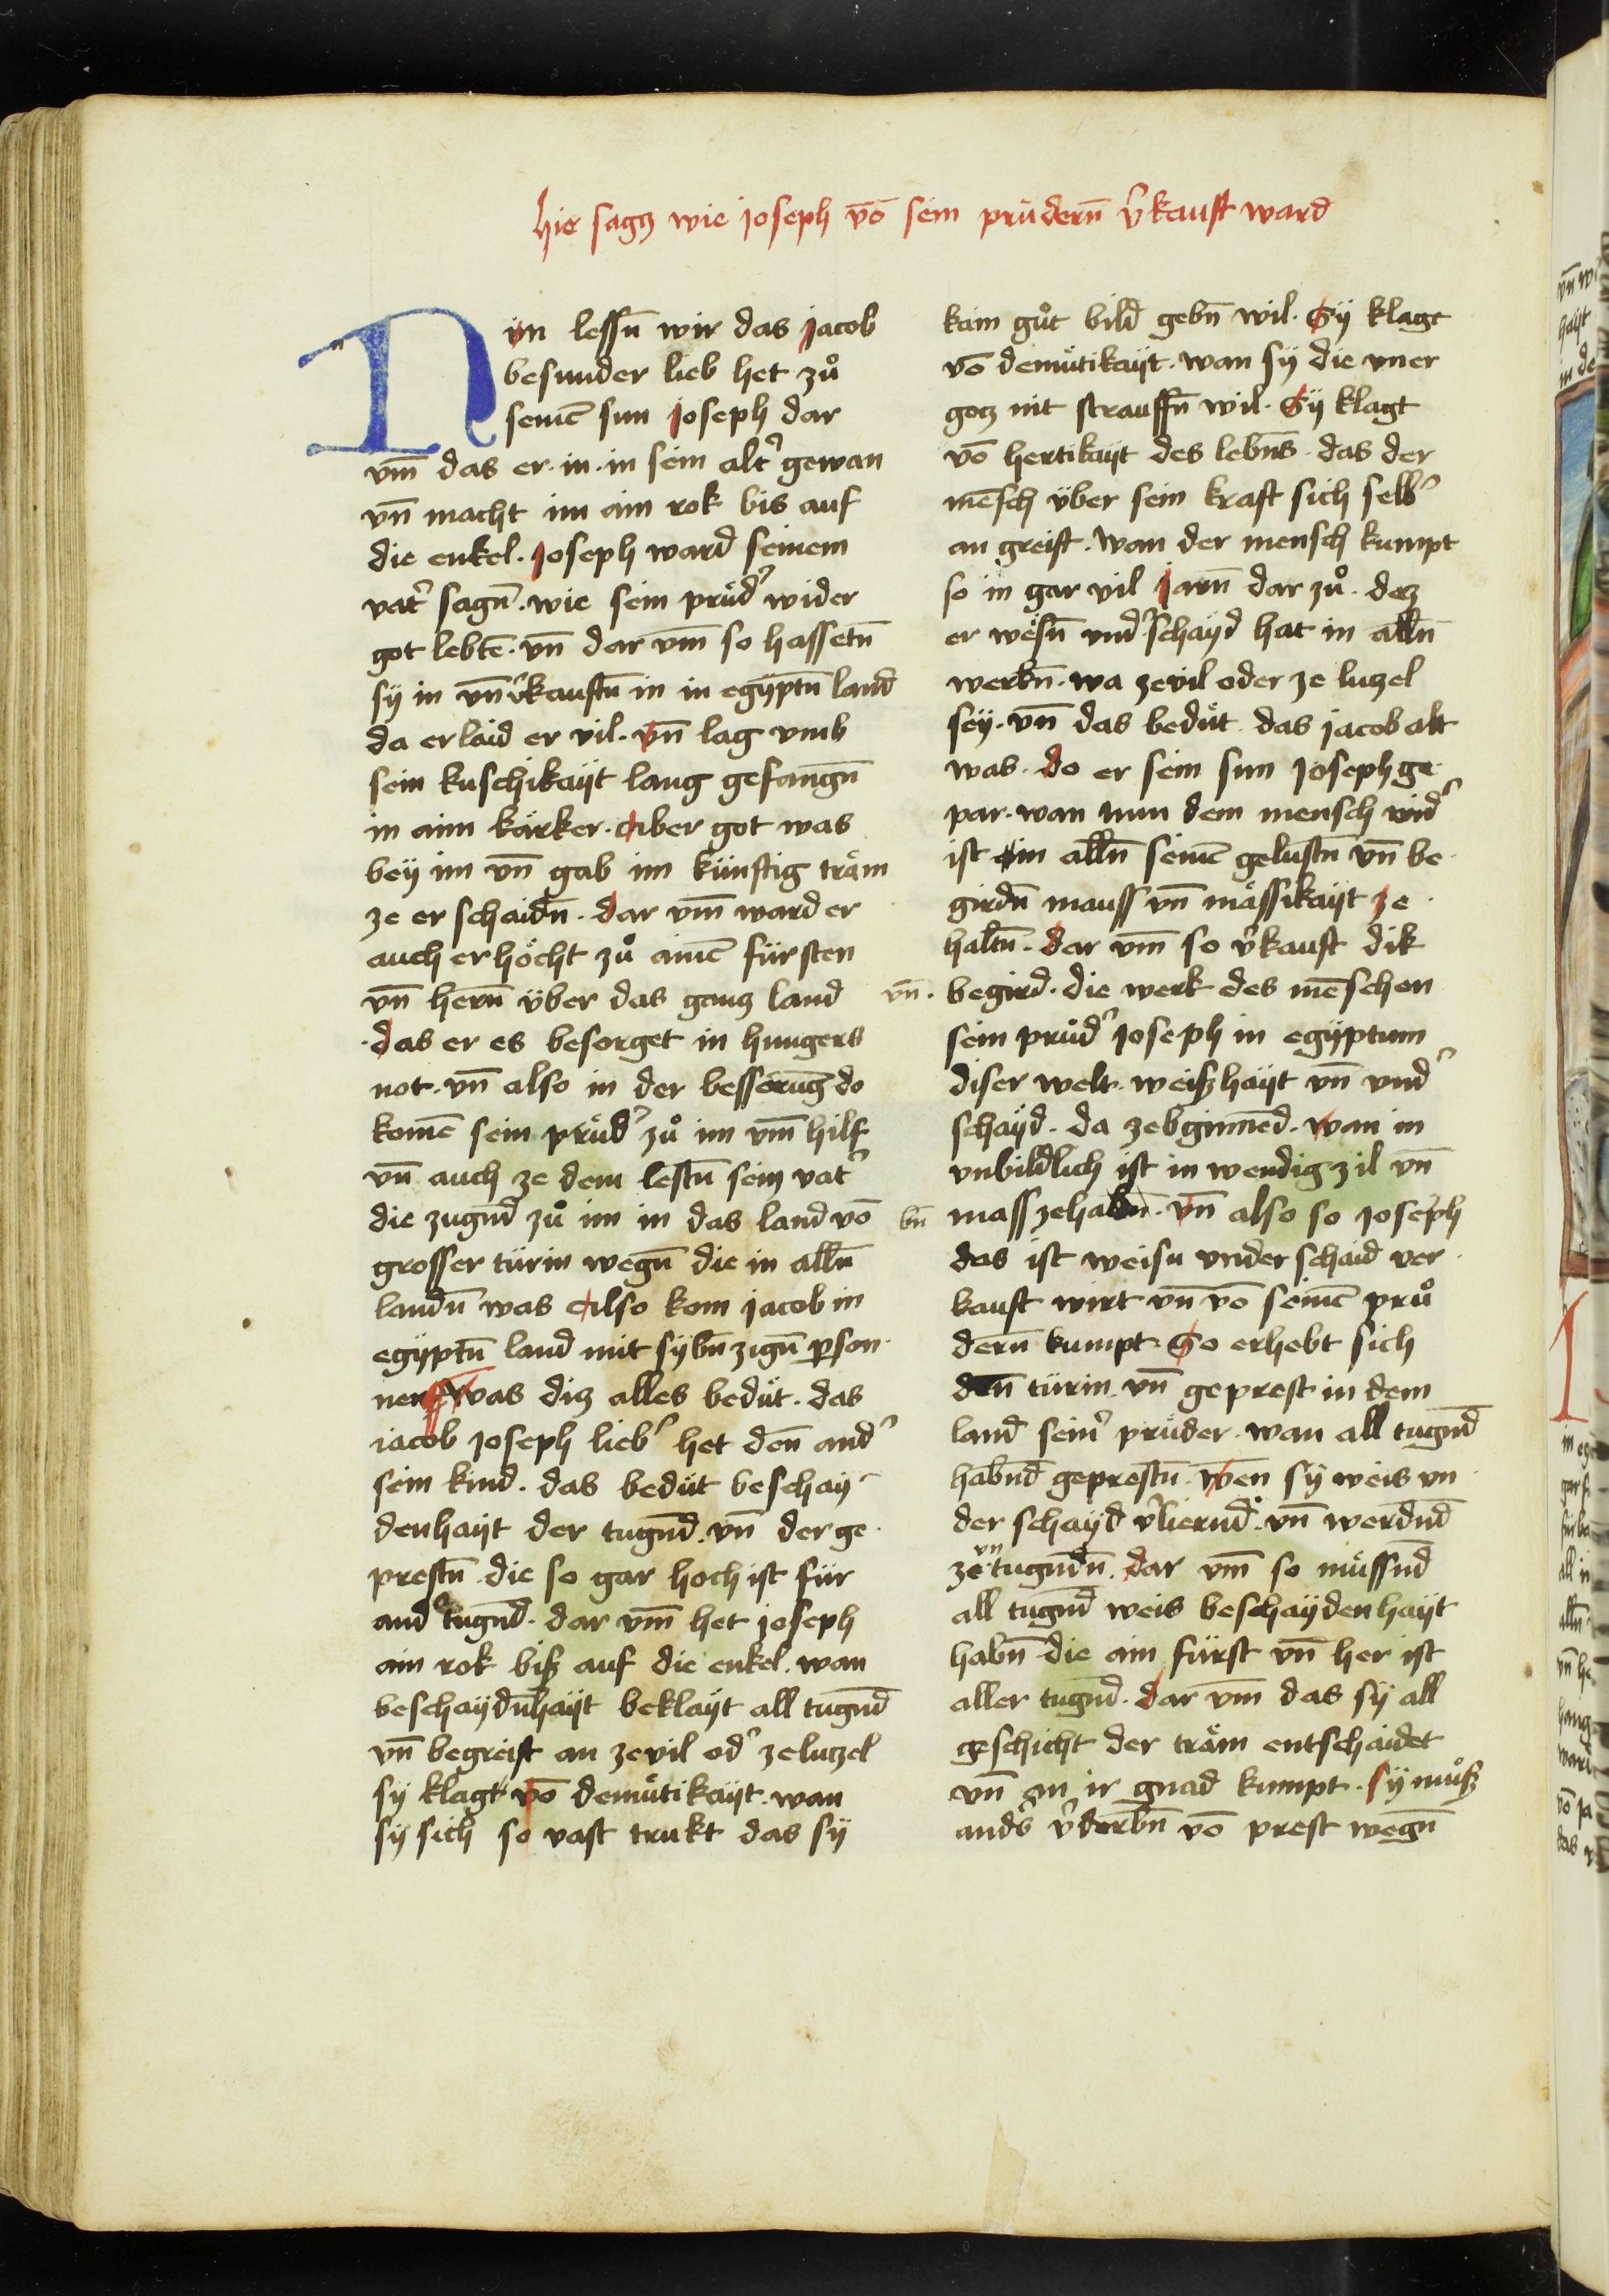 hie sagtz wie joseph vō sein prüdern̄ v̾kauft ward
Nūn lessn̄ wir das jacob
besunder lieb het zů
seinē sun joseph dar
vm̄ das er · in · in sein alt̾ gewan
vn̄ macht im ain rok bis auf
die enkel · joseph ward seinem
vat̾ sagn̄ · wie sein průd̾ wider
got lebtē · vn̄ dar vm̄ so hassetn̄
sÿ in vn̄ v̾kauftn̄ in in egÿptn̄ land
da erlaid er vil · vn̄ lag vmb
sein kuschikaÿt lang gefangn̄
in aim kärker · Aber got was
beÿ im vn̄ gab im künftig träm
ze er schaidn̄ · dar vm̄ ward er
auch erhöcht zů ainē fürsten
vn̄ hern̄ über das gantz land
· das er es besorget in hungers
not · vn̄ also in der besserūg do
komē sein průd̾ zů im vm̄ hilf
vn̄ auch ze dem lestn̄ sein vat̾
die zugn̄d zů im in das land vō
grosser türin wegn̄ die in alln̄
landn̄ was Also kom jacob in
egÿptn̄ land mit sÿbn̄zign̄ p̱son
nen Was ditz alles bedüt · das
iacob joseph lieb̾ het den̄ and̾
sein kind · das bedüt beschaÿ
denhaÿt der tugn̄d · vn̄ der ge
prestn̄ · die so gar hoch ist für
and̾ tugn̄d · dar vm̄ het joseph
ain rok biß auf die enkel · wan
beschaÿdn̄haÿt beklaÿt all tugn̄d
vn̄ begreift an zevil od̾ zelutzel
sÿ klagt vō demütikaÿt · wan
sÿ sich so vast trukt das sÿ
kain gůt bild gebn̄ wil · Sÿ klagt
vō demütikaÿt · wan sÿ die vner
gotz nit strauffn̄ wil · Sÿ klagt
vō hertikaÿt des lebn̄s · das der
mēsch über sein kraft sich selb̾
an greift · Wan der mensch kumpt
so in gar vil jarn̄ dar zů · dez
er wësn̄ vnd̾schaÿd hat in alln̄
werkn̄ · wa zevil oder ze lutzel
seÿ · vn̄ das bedüt · das jacob alt
was · do er sein sun joseph ge
par · wan nun dem mensch wid̾
ist in alln̄ seinē gelustn̄ vn̄ be
girdn̄ mauss vn̄ mässikaÿt ze
haltn̄ · dar vm̄ so v̾kauft dik
vn̄ · begird · die werk des mēschen
sein průd̾ joseph in egÿptum
diser welt · weißhaÿt vn̄ vnd̾
schaÿd · da zebginnēd · wan in
vnbildlich ist in wendig zil vn̄
bn̄ mass zehabn̄ · vn̄ also so joseph
das ist weisu vnder schaid ver
kauft wirt vn̄ vō seinē prů
dern̄ kumpt · So erhebt sich
den̄ türin · vn̄ geprest in dem
land sein̾ prüder · wan all tugn̄d
habn̄d geprestn̄ · Wen sÿ weis vn
der schaÿd v̾liern̄d · vn̄ werdn̄d
ze vn tugndn̄ · dar vm̄ so müssn̄d
all tugn̄d weis beschaÿdenhaÿt
habn̄ die ain fürst vn̄ her ist
aller tugn̄d · dar vm̄ das sÿ all
geschicht der träm entschaidet
vn̄ an ir gnad kumpt · sÿ můß
and̾s v̾derbn̄ vō prest wegn̄